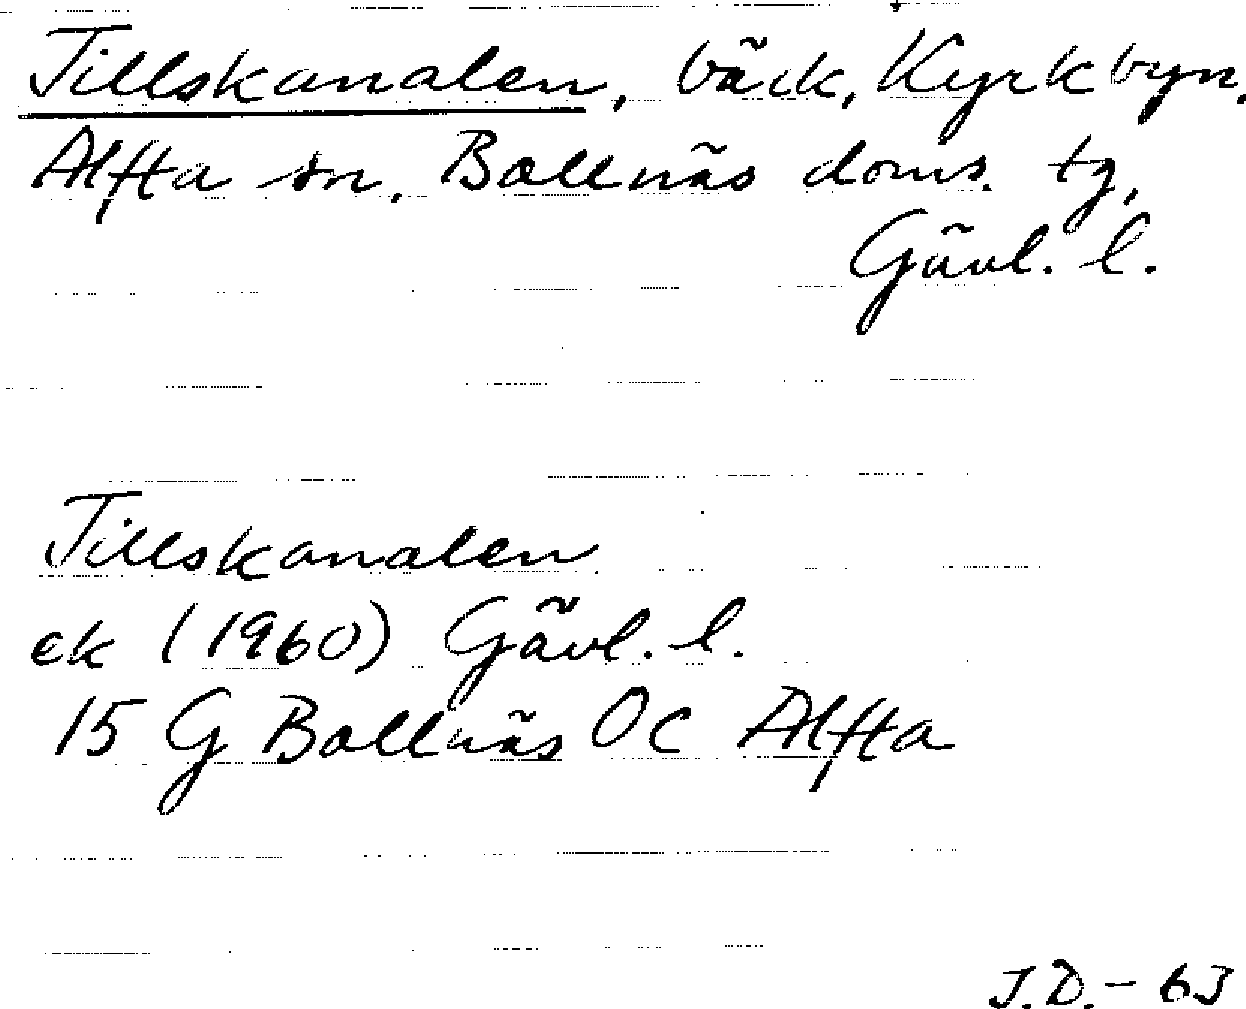 Tillskanalen, bäck, Kyrkbyn,
Alfta sn, Bollnäs doms. tg,
Gävl. l.
Tillskanalen
ek (1960) Gävl. l.
15 G Bollnäs Oc Alfta
J.D. - 63